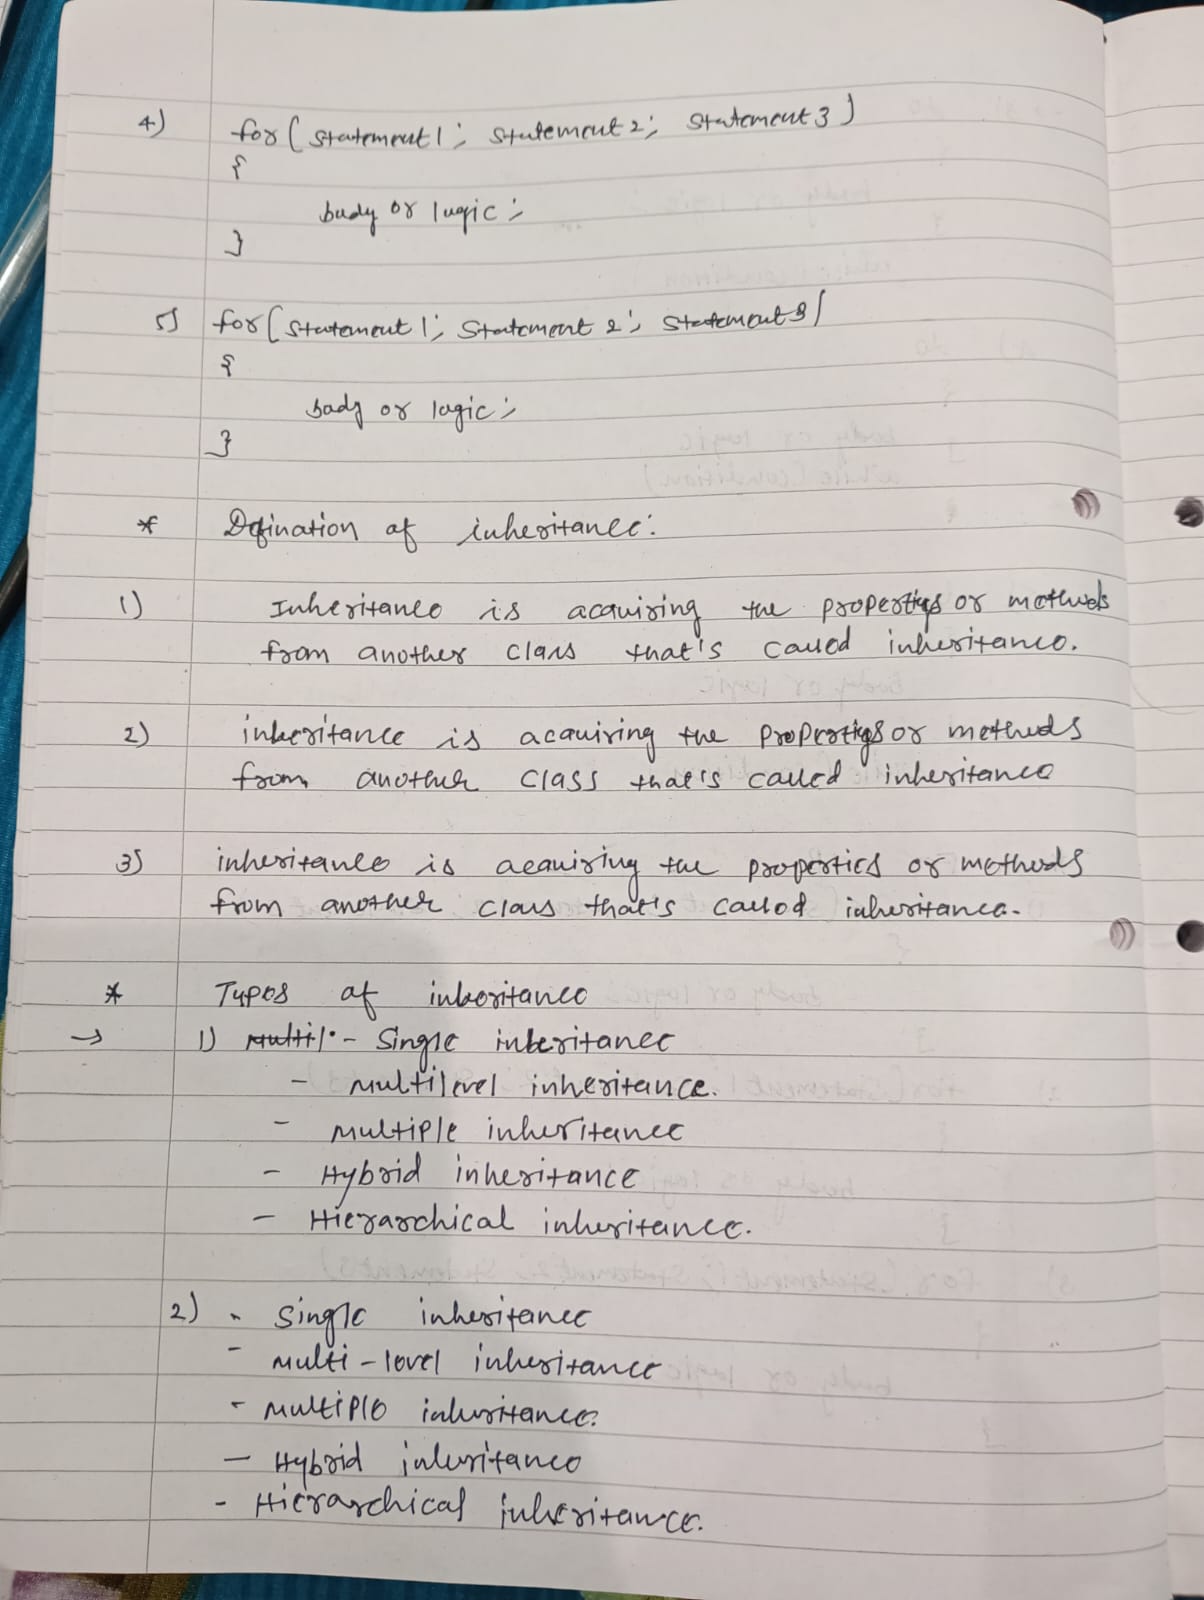 4) for ( statement 1 ; statement 2 ; statement 3 )
{
body or logic ;
}
5) for ( statement 1 ; statement 2 ; statement 3 )
{
body or logic ;
}
* Defination of inheritance :
1) Inheritance is acquiring the properties or methods
from another class that's called inheritance.
2) inheritance is acquiring the properties or methods
from another class that's called inheritance
3) inheritance is acquiring the properties or methods
from another class that's called inheritance.
* Types of inheritance
→ 1) Multil - Single inheritance
- Multilevel inheritance.
- Multiple inheritance
- Hybrid inheritance
- Hierarchical inheritance.
2) - Single inheritance
- Multi-level inheritance
- Multiple inheritance.
- Hybrid inheritance
- Hierarchical inheritance.